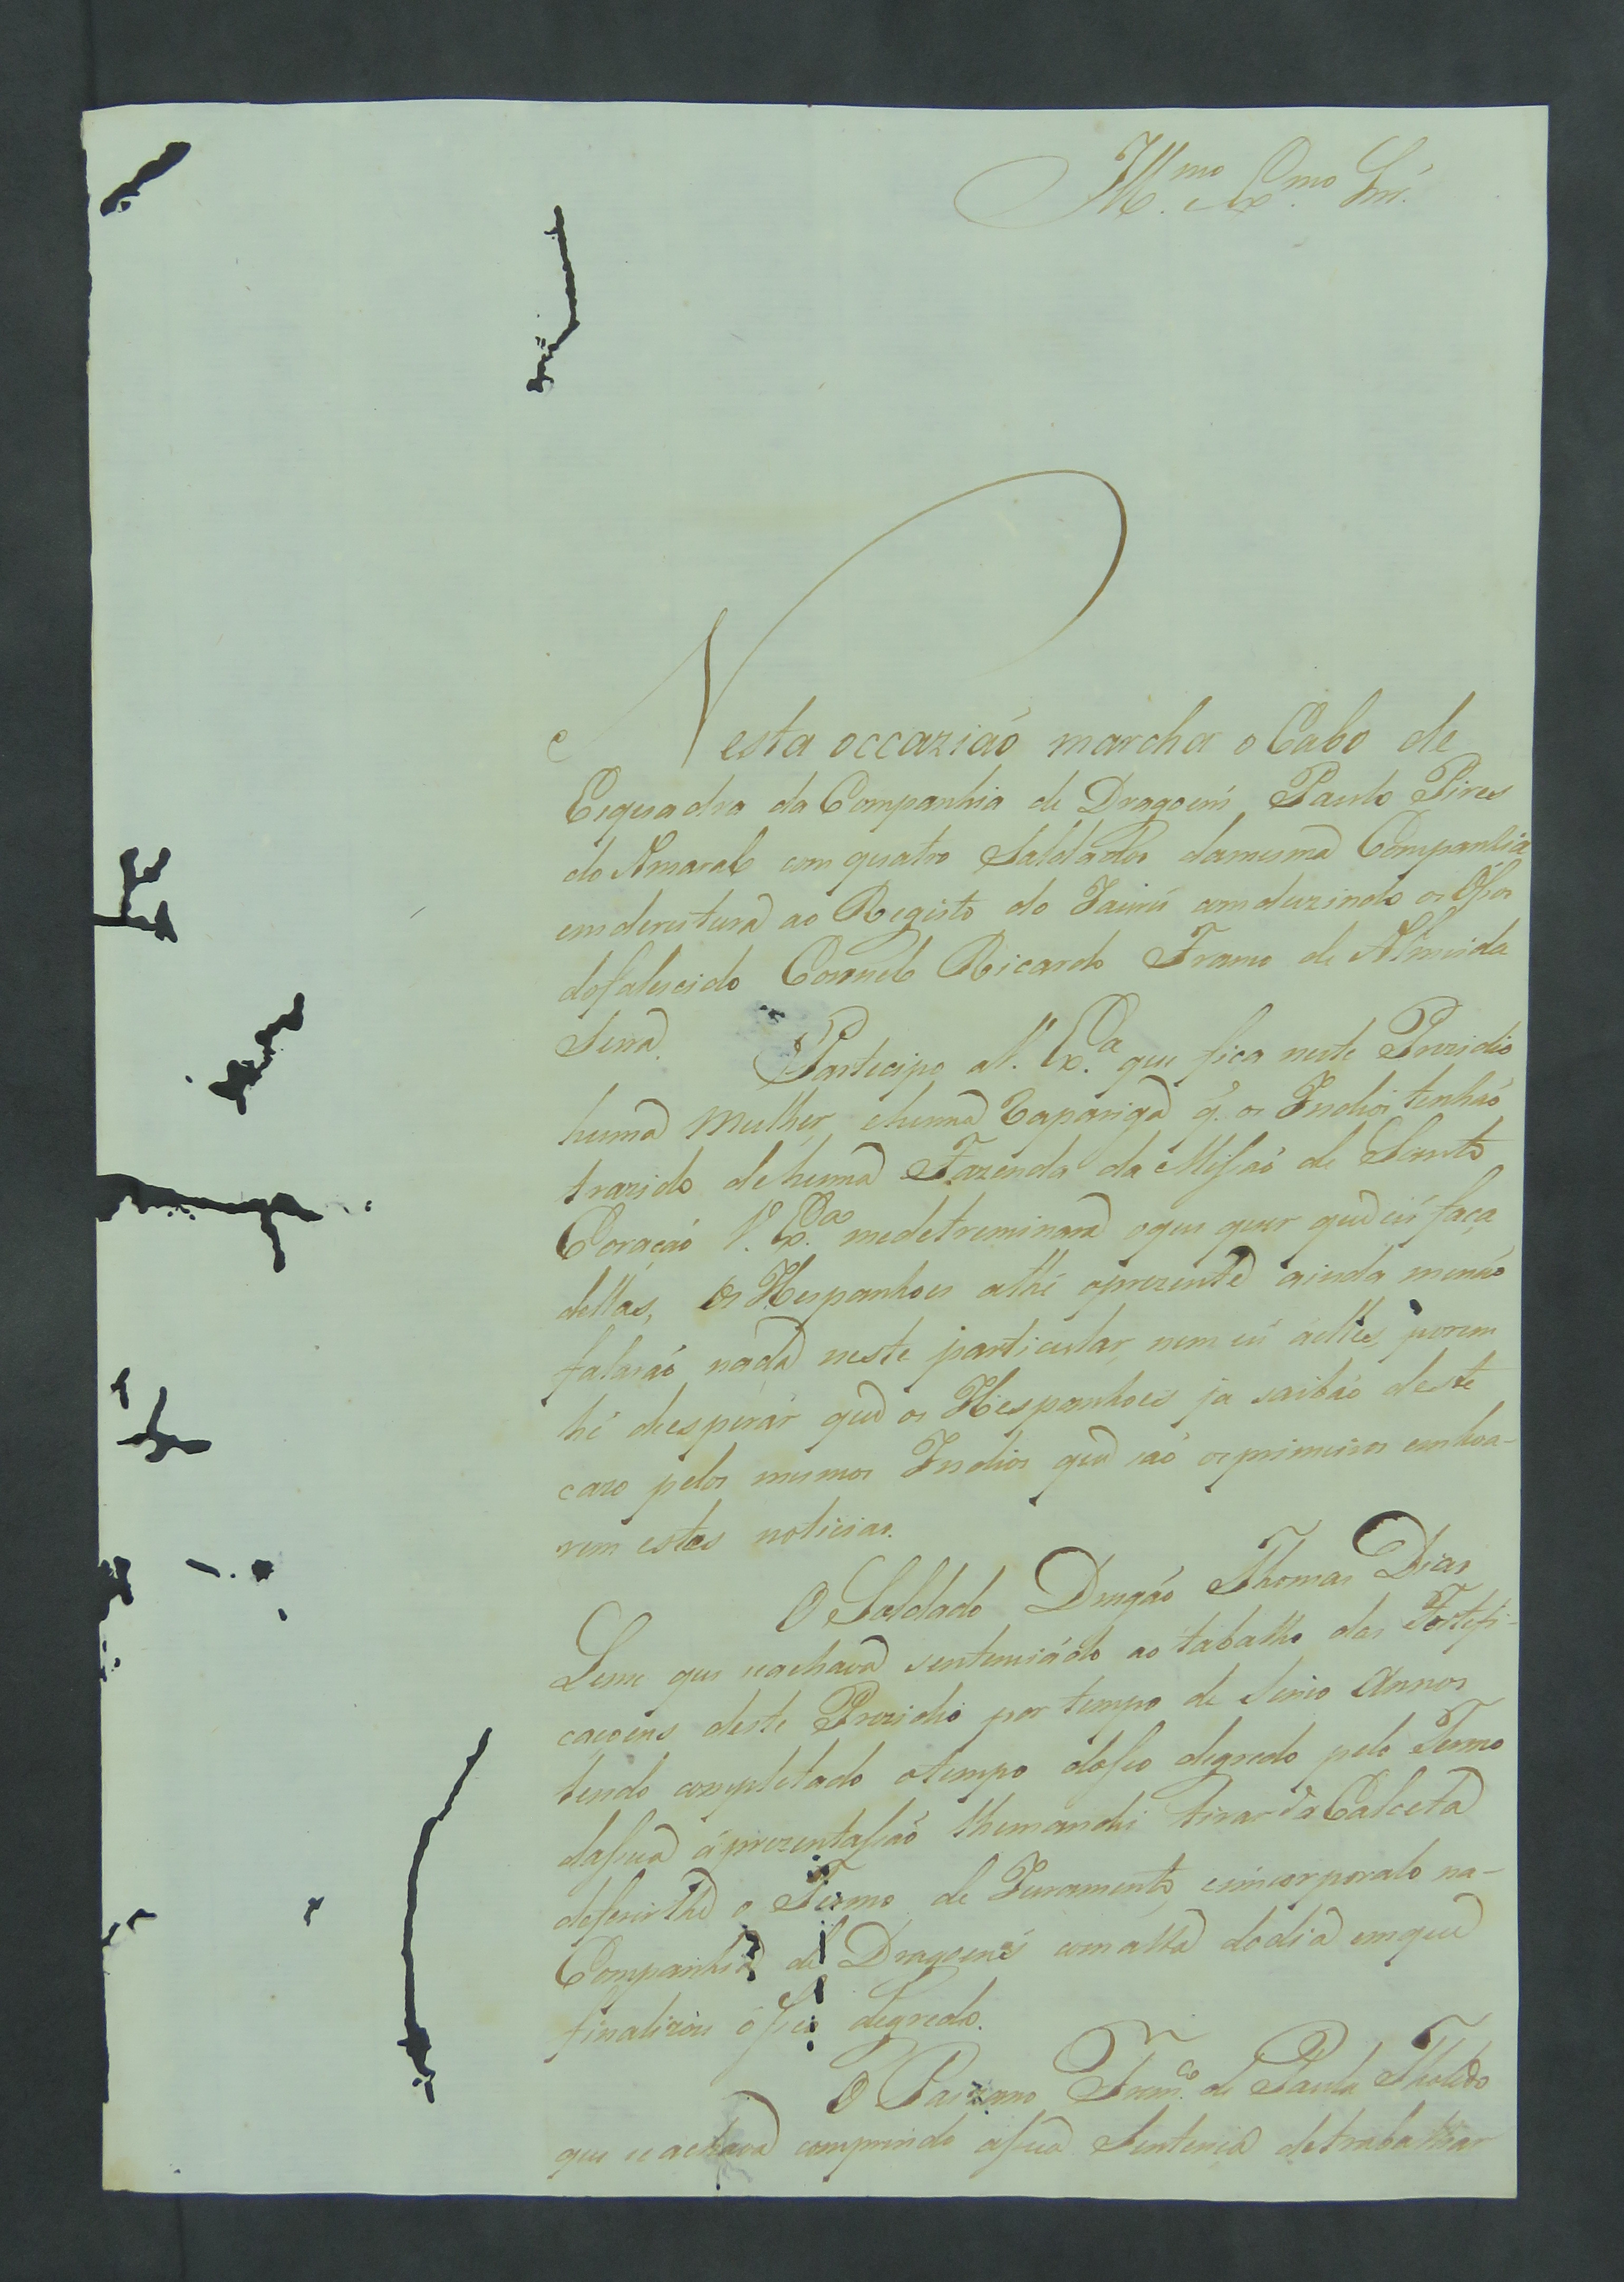 Ill.mo Ex.mo Snr.
Nesta occaziaó marcha o Cabo de
Esquadra da Companhia de Dragoens Paulo Pires
do Amaral com quatro Saldados damesma Companhia
emdereitura ao Registo do Jaurú comduzindo os Ossos
dofalescido Coronel Ricardo Franco de Almeida
Serra.
Partecipo a V. Ex.a que fica neste Prezidio
huma Mulher, ehuma Rapariga q. os Indios tenhaó
trazido dehuma Fazenda da Missaó de Santo
Coraçaó V. Ex.a medetreminará oque quer que eú faça
dellas, os Hespanhoes athé oprezente ainda menaó
falaraó nada neste particular, nem eú aelles, porem
hé deesperár que os Hespanhoes ja saibaó deste
cazo pelos mesmos Indios que saó osprimeiros
rem estas noticias.
O Soldado Dragaó Thomas Dias
Leme que seachava sentenciádo ao tabalho das Fortefi-
caçoens deste Prezidio por tempo de Sinco Annos
tendo completado otempo doseo degredo pelo Termo
dasua áprezentassaó lhemandei tirar da Calceta
deferirlhe o Termo de Juramento, eincorporalo na-
Companhia de Dragoens comalta dodia emque
finalizou ó seo degredo.
O Paizano Fran.co de Paula Tholedo
que se achava comprindo asua Sentença detrabalhar